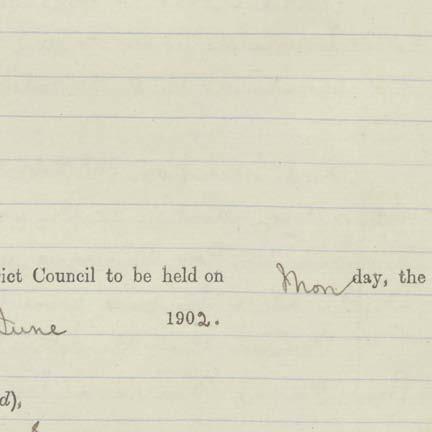 ict Council to be held on Monday, the
June 1902.
d),